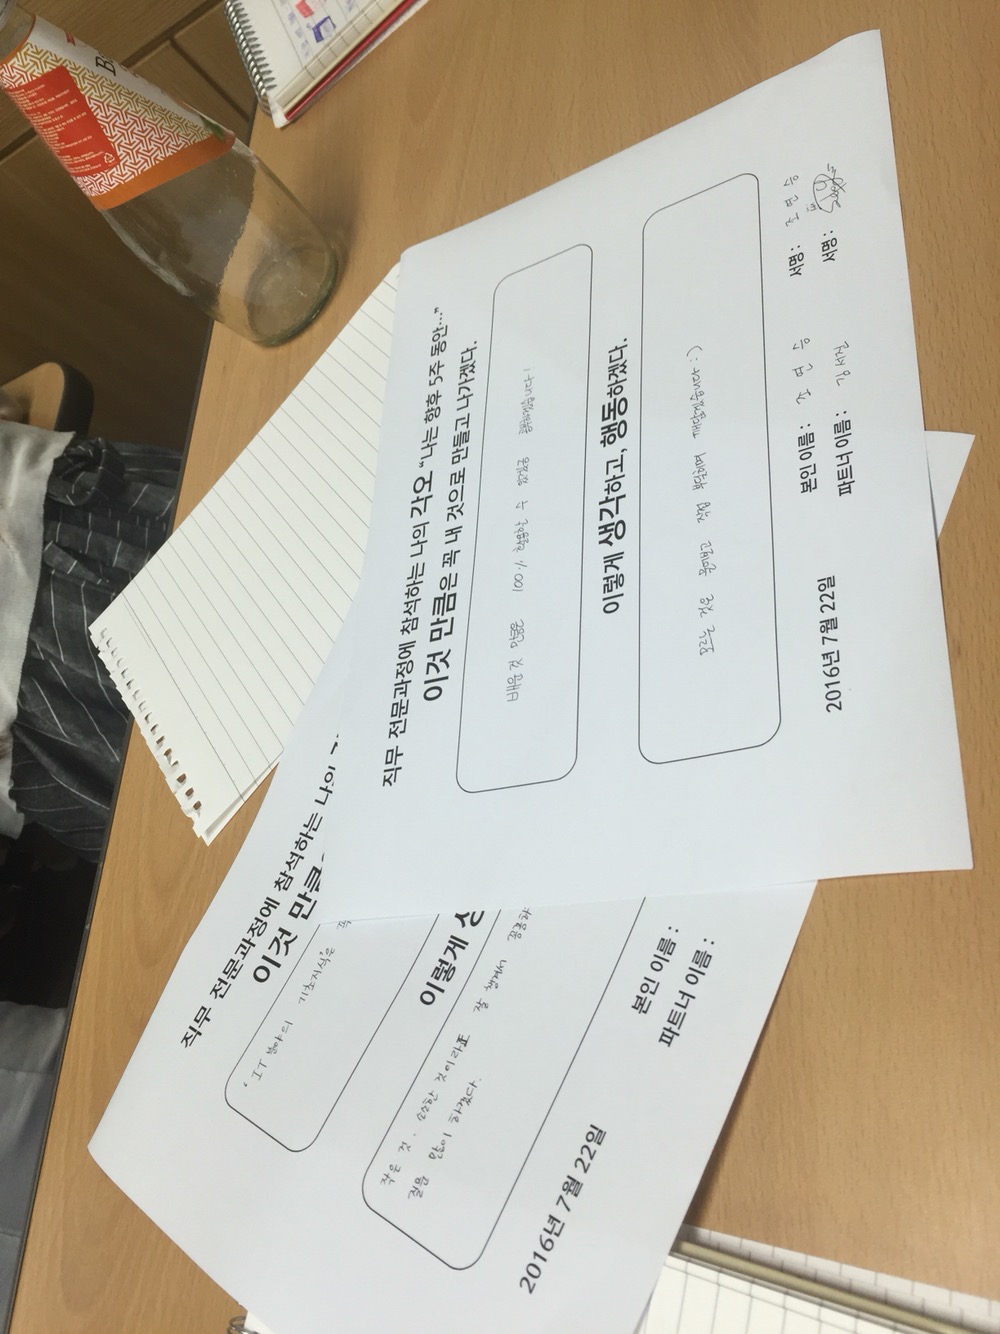 직무 전문과정에 참석하는 나의 각오 “나는 향후 5주 동안...”
이것 만큼은 꼭 내 것으로 만들고 나가겠다.
배운 것 만큼은 100% 활용할 수 있게끔 공부하겠습니다!
이렇게 생각하고, 행동하겠다.
모르는 것은 물어보고 직접 부딪히며 깨닫겠습니다 :)
2016년 7월 22일
본인 이름 : 조 민 승 서명 : 조 민 승
파트너 이름 : 강서진 서명 :
직무 전문과정에 참석하는 나의
이것 만큼
IT 분야의 기초지식은 꼭
이렇게
작은 것, 소소한 것이라도 잘 챙겨서 꼼꼼하
질문 많이 하겠다.
2016년 7월 22일
본인 이름 :
파트너 이름 :